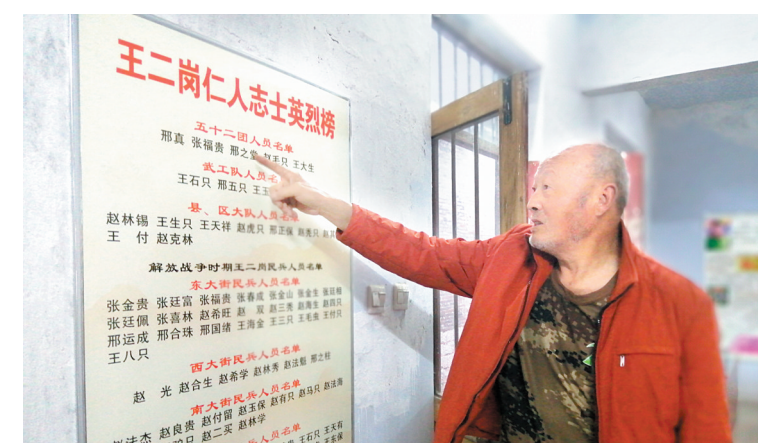 王二岗仁人志士英烈榜
五十二团人员名单
邢真 张福贵 邢之堂 赵毛只 王大生
武工队人员名
王石只 邢五只 王
县、区大队人员名单
赵林锡 王生只 王天祥 赵虎只 邢正保 赵秃只
王 付 赵克林
解放战争时期王二岗民兵人员名单
东大街民兵人员名单
张金贵 张廷富 张福贵 张春成 张金山 张金生
张廷佩 张喜林 赵希旺 赵 双 赵三秃 赵海生 赵四只
邢运成 邢合珠 邢国绪 王海金 王三只 王毛虫 王付只
王八只
西大街民兵人员名单
赵 光 赵合生 赵希学 赵林秀 赵法魁 邢之柱
南大街民兵人员名单
赵法杰 赵良贵 赵付留 赵玉保 赵有只 赵马只 赵法海
只 赵二买 赵林学
人员名单
王石只 王天有